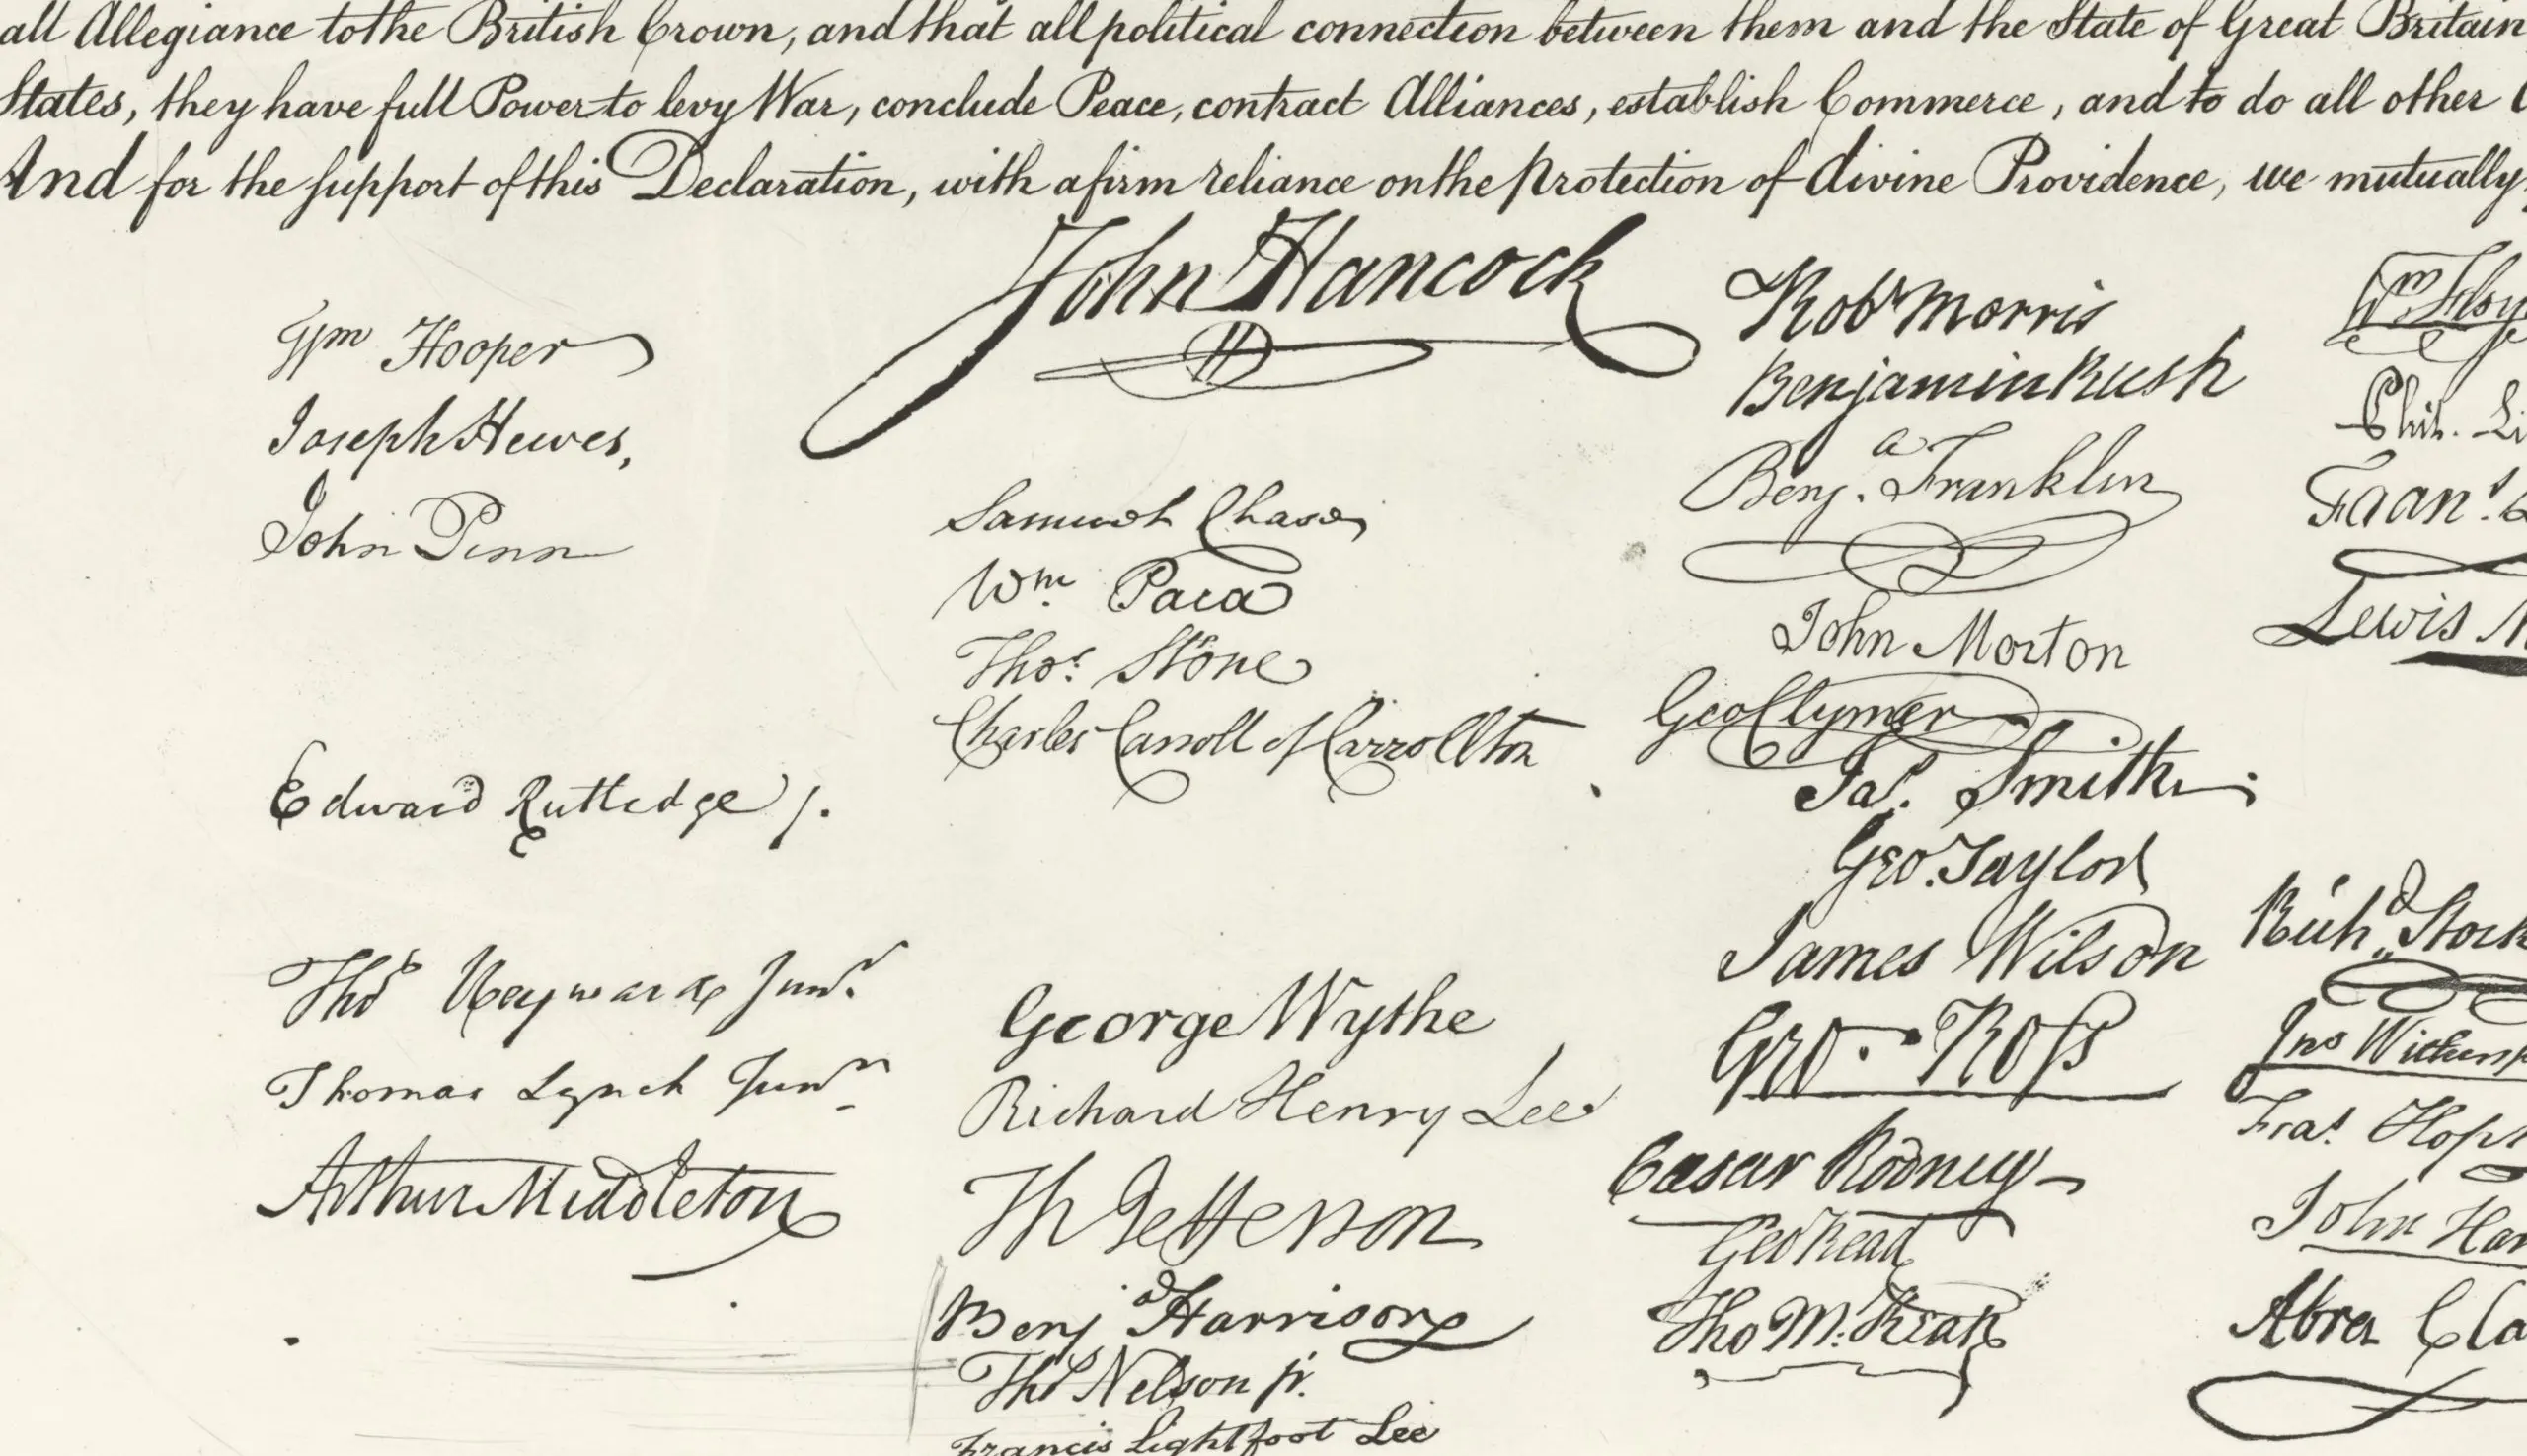 all Allegiance to the British Crown, and that all political connection between them and the State of Great Britain
States, they have full Power to levy War, conclude Peace, contract Alliances, establish Commerce, and to do all other
And for the support of this Declaration, with a firm reliance on the protection of divine Providence, we mutually
John Hancock
Wm Hooper
Joseph Hewes,
John Penn
Edward Rutledge /.
Thos Heyward Junr.
Thomas Lynch Junr
Arthur Middleton
Samuel Chase
Wm. Paca
Thos. Stone
Charles Carroll of Carrollton
George Wythe
Richard Henry Lee
Th Jefferson
Benja Harrison
Thos Nelson jr.
Francis Lightfoot Lee
Robt Morris
Benjamin Rush
Benja. Franklin
John Morton
Geo Clymer
Jas. Smith
Geo. Taylor
James Wilson
Geo. Ross
Caesar Rodney
Geo Read
Tho M:Kean
Wm Floy
Phil. Li
Fran.s L
Lewis M
Richd. Stock
Jno Withersp
Fras. Hopk
John Har
Abra Cla